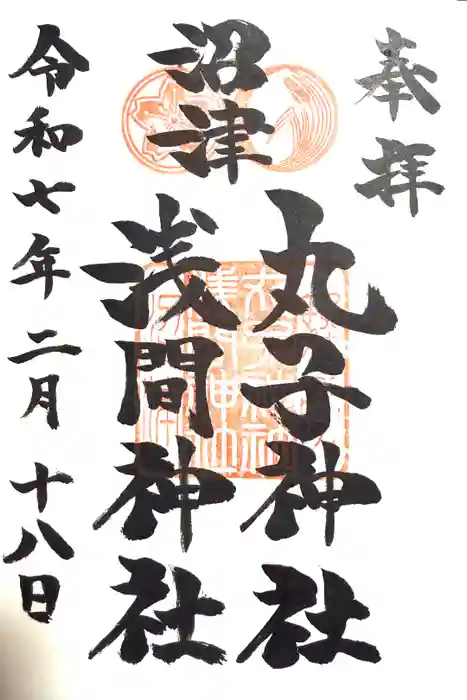 奉拝
沼津
丸子神社
浅間神社
令和七年二月十八日